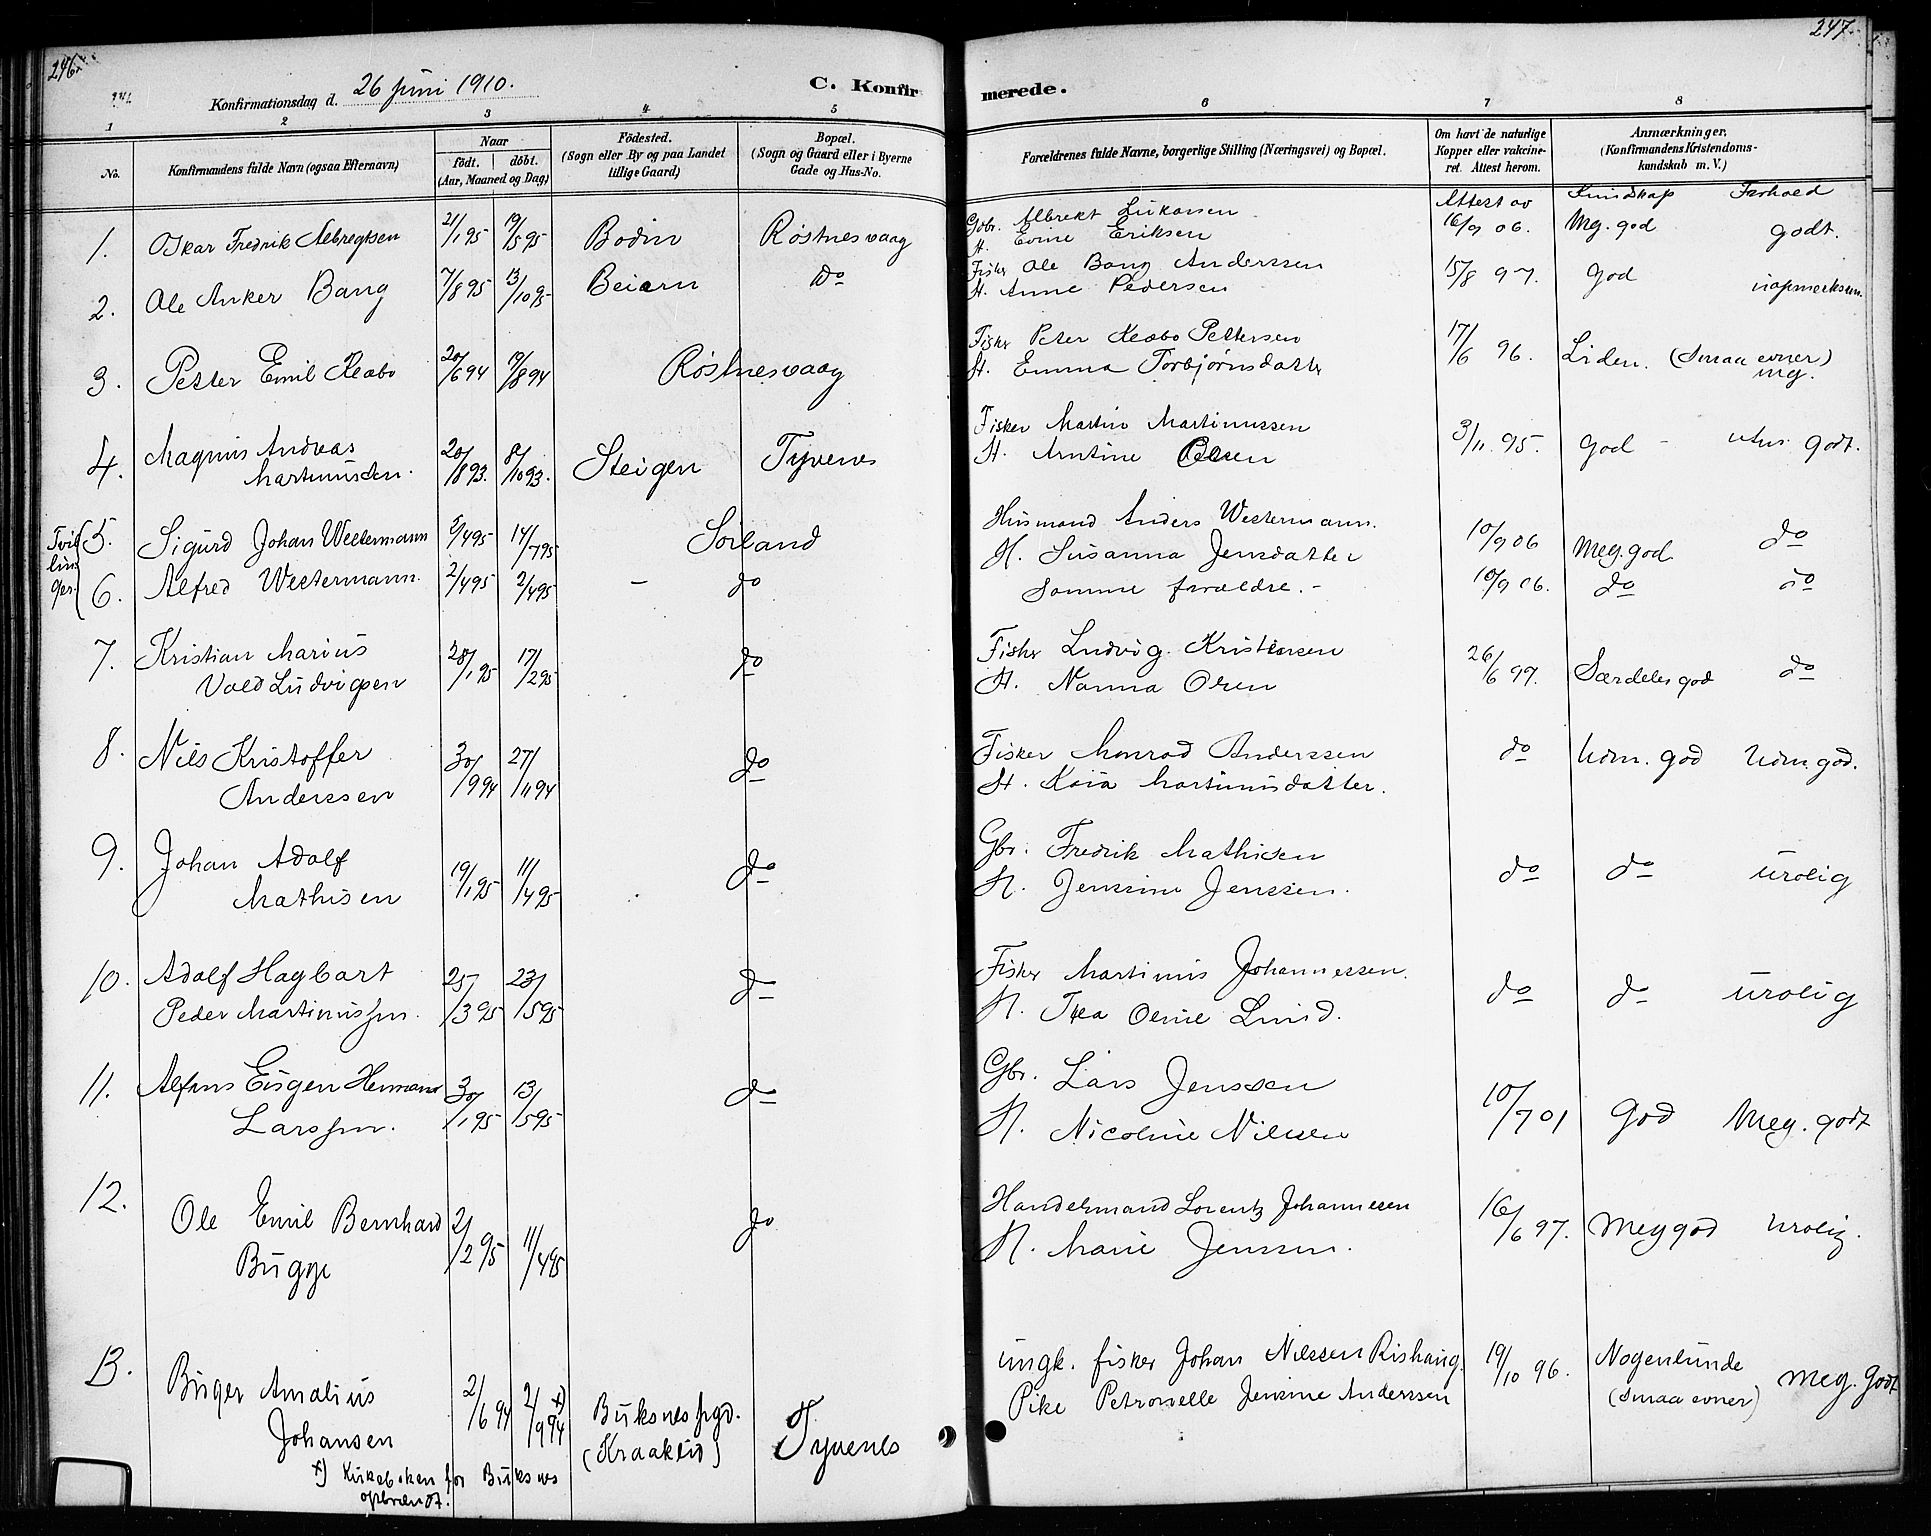 246.
247.
Konfirmationsdag d. 26 juni 1910.
C. Konfirmerede.
1 2 3 4 5 6 7 8
No.
Konfirmandens fulde Navn (ogsaa Efternavn)
Naar
født. døbt.
(Aar, Maaned og Dag)
Fødested.
(Sogn eller By og paa Landet
tillige Gaard)
Bopæl.
(Sogn og Gaard eller i Byerne
Gade og Hus-No.
Forældrenes fulde Navne, borgerlige Stilling (Næringsvei) og Bopæl.
Om havt de naturlige
Kopper eller vakcine-
ret. Attest herom.
Anmærkninger.
(Konfirmandens Kristendoms-
kundskab m. V.)
Attest av Kundskap Forhold
1. Oskar Fredrik Albregtsen 21/1 95 19/5 95 Bodin Røstnesvaag Gbr. Albrekt Lukassen 16/9 06. Meg. god godt.
H. Evine Eriksen
2. Ole Anker Bang 7/8 95 13/10 95 Beiarn do Fisker Ole Bang Anderssen 15/8 97. god uopmerksom.
H. Anne Pedersen
3. Petter Emil Kleabo 20/6 94 19/8 94 Røstnesvaag Fisker Peter Kleabo Pettersen 17/6 96. Liden. (Smaa evner) meg.
H. Emma Torbjørnsdatter
4. Magnus Andreas 20/8 93. 8/10 93. Steigen Tyvenes Fisker Martin Martinussen 3/11 95. god - godt.
Martinussen. H. Arntine Olsen
Tvil-
lin-
ger.
5. Sigurd Johan Westermann 2/4 95 14/7 95 Sørland Husmand Anders Westermann. 10/9 06 Meg. god do
H. Susanna Jensdatter
6. Alfred Westermann. 2/4 95 2/4 95 - do Samme forældre. - 10/9 06. do do
7. Kristian Marius 28/1 95 17/2 95 do Fisker Ludvig Kristensen 26/6 97. Særdeles god do
Vold Ludvigsen H. Nanna Olsen
8. Nils Kristoffer 30/9 94 27/11 94 do Fisker Monrad Anderssen do Udm. god Udm. god.
Anderssen H. Kaia Martinusdatter.
9. Johan Adolf 19/1 95 11/4 95 do Gbr. Fredrik Mathisen do do urolig
Mathisen H. Jensine Jenssen.
10. Adolf Hagbart 25/3 95 23/5 95 do Fisker Martinus Johannessen. do do urolig
Peder Martinussen. H. Thea Oline Lund.
11. Alfons Eugen Hermann 30/1 95 13/5 95 do Gbr. Lars Jenssen 10/7 01 God Meg. godt
Larssen. H. Nicoline Nilssen
12. Ole Emil Bernhard 2/2 95 11/4 95 do Handelsmand Lorentz Johannesen 16/6 97. Meg god urolig.
Bugge H. Marie Jenssen.
13. Birger Amalius 2/6 94 2/9 94 x) Buksnes prgd. Tyvenes ungk. fisker Johan Nilssen Rishaug. 19/10 96. Nogenlunde Meg. godt
Johansen (Kraaklid) Pike Petronelle Jensine Anderssen (Smaa evner)
x) Kirkeboken for Buksnes
opbrændt.